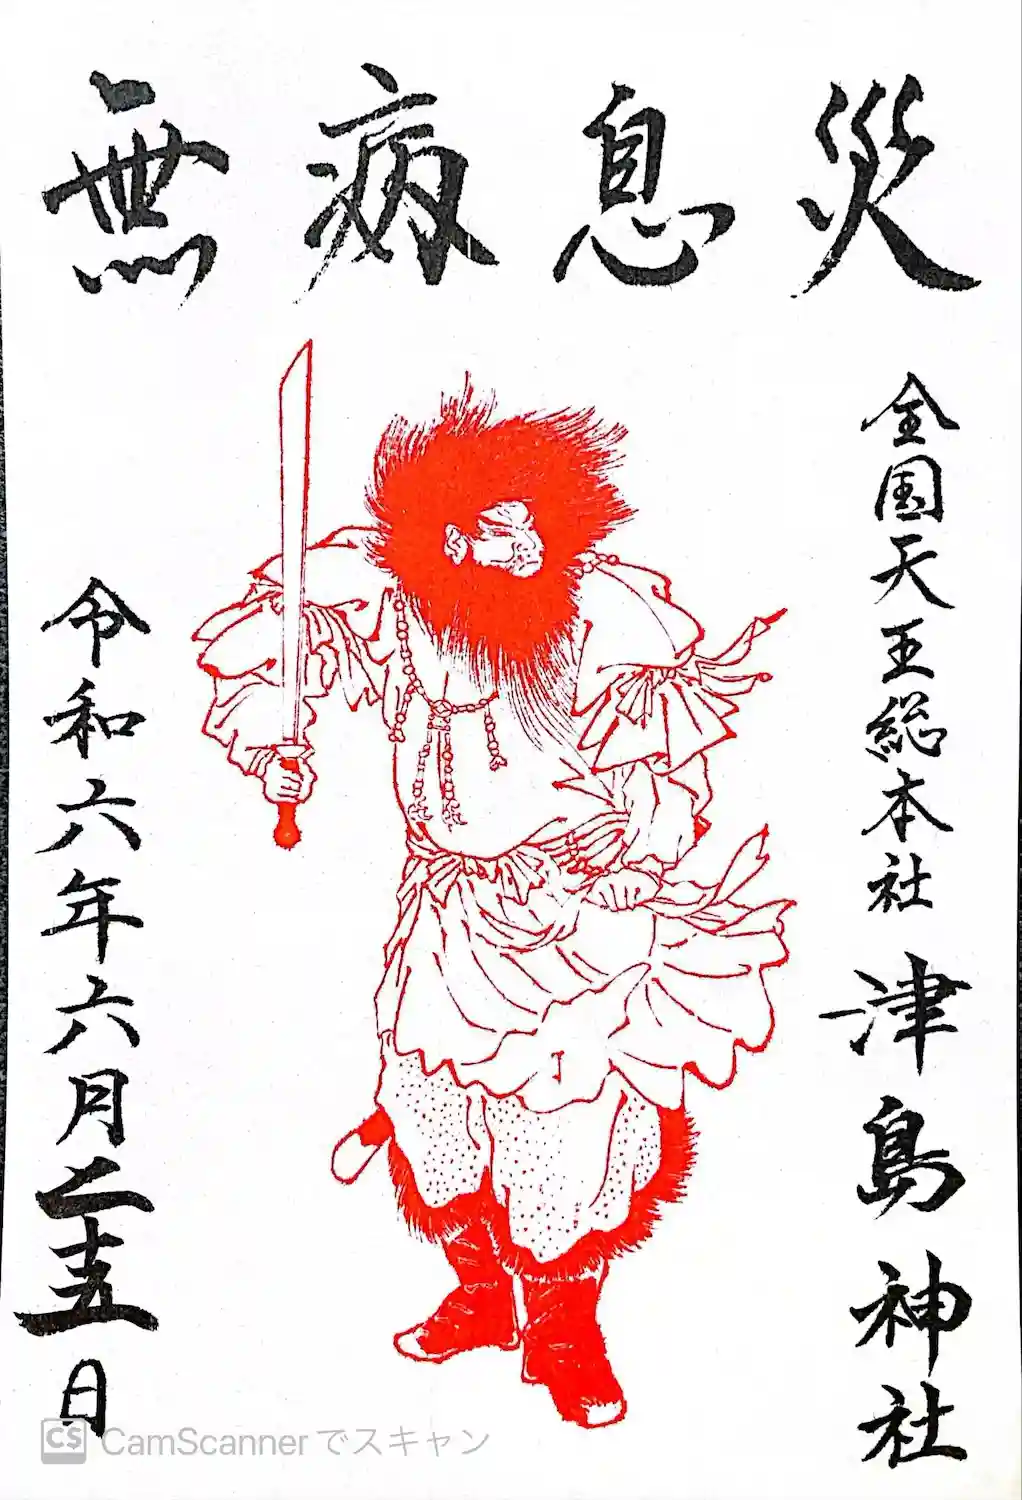 無病息災
全国天王総本社 津島神社
令和六年六月二十五日
CS CamScannerでスキャン